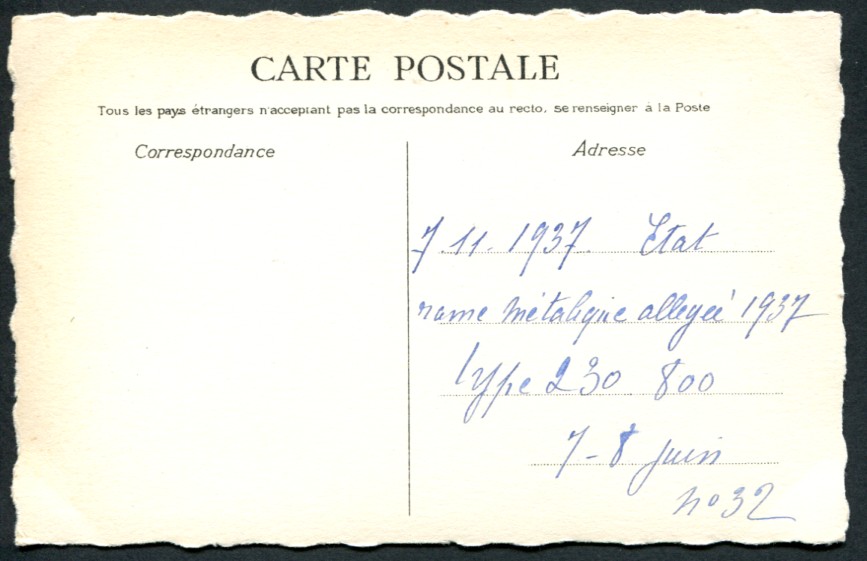 CARTE POSTALE
Tous les pays étrangers n'acceptant pas la correspondance au recto, se renseigner à la Poste
Correspondance
Adresse
7.11.1937. Etat
rame métalique allegée 1937
type 230 800
7-8 juin
n° 32